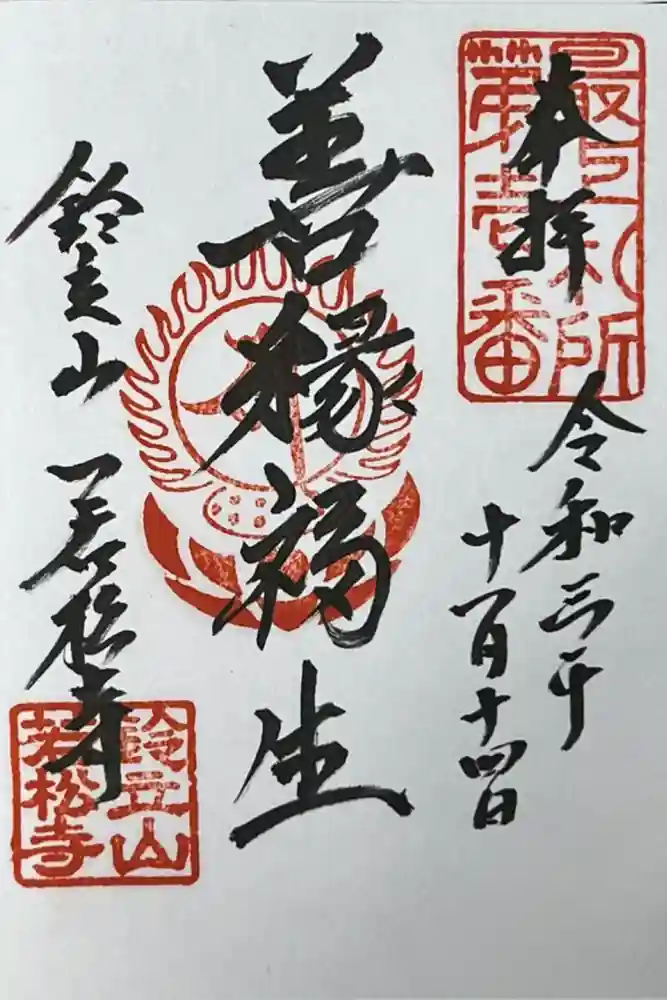 奉拝
最上札所
第壱番
令和三年
十一月十四日
善縁福生
鈴立山 若松寺
鈴立山
若松寺